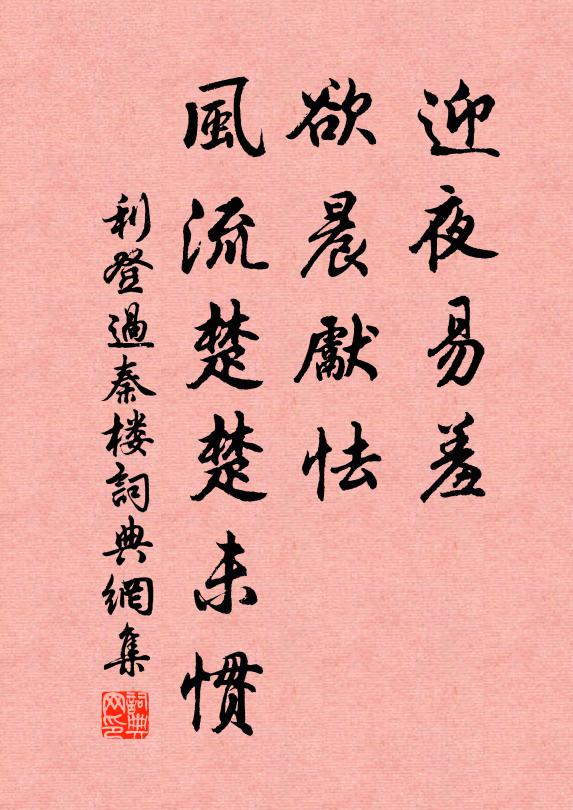 迎夜易羞
欲晨獻怯
風流楚楚未慣
利登過秦楼詞典網集
詞典网印